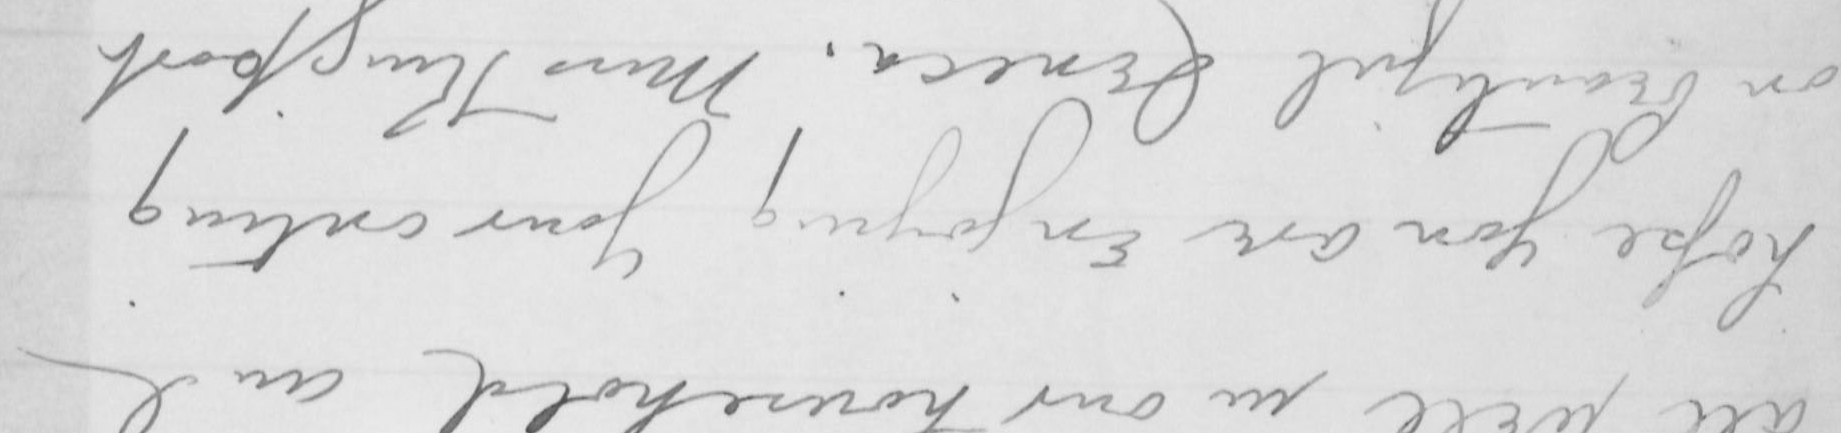 all well in our household and
hope you are enjoying your outing
on beautiful Seneca. Miss